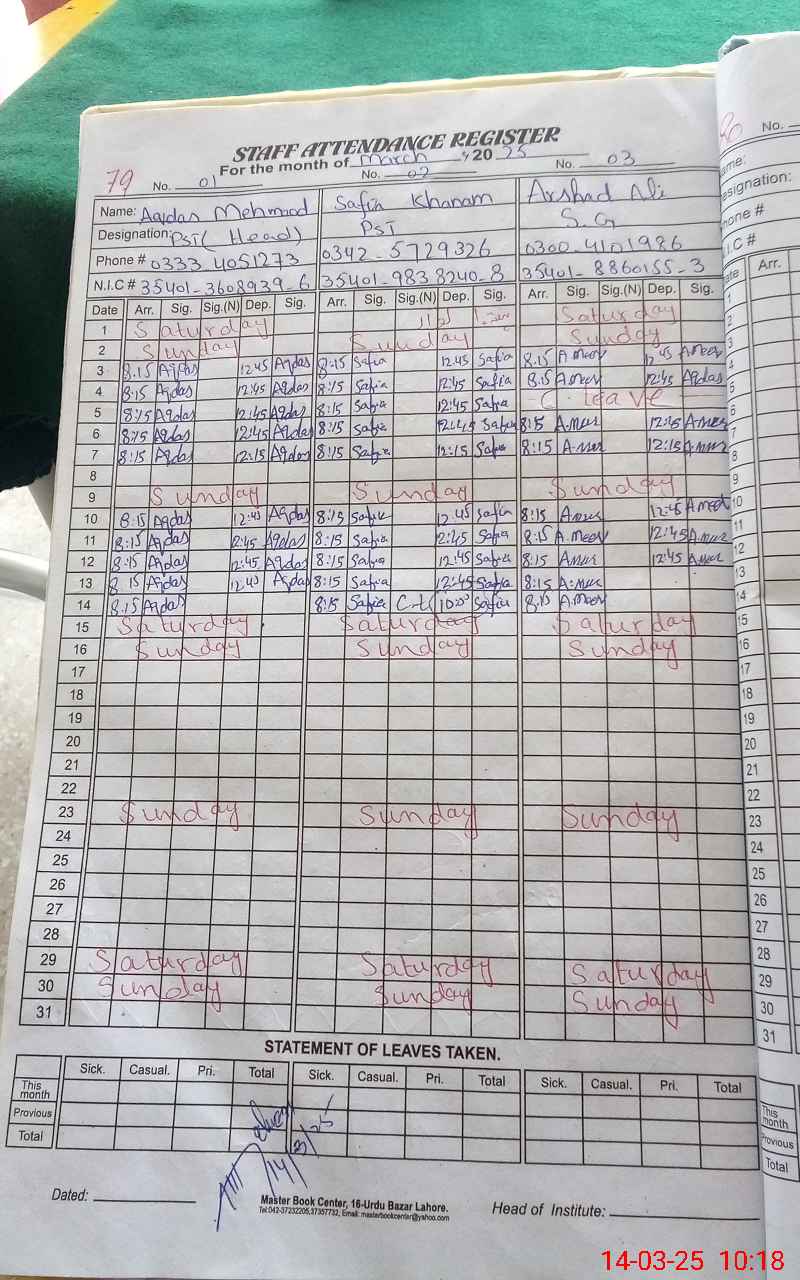 STAFF ATTENDANCE REGISTER
For the month of March 2025
79 No. 01 No. 02 No. 03
Name: Aqdas Mehmood Safia Khanam Arshad Ali
Designation: PST (Head) PST S.G
Phone # 0333 4051273 0342-5729326 0300-4101986
N.I.C # 35401-3608939-6 35401-9838240-8 35401-8860155-3
Date Arr. Sig. Sig.(N) Dep. Sig. Arr. Sig. Sig.(N) Dep. Sig. Arr. Sig. Sig.(N) Dep. Sig.
1 Saturday Saturday
2 Sunday Sunday Sunday
3 8:15 Aqdas 12:45 Aqdas 8:15 Safia 12:45 Safia 8:15 A.meer 12:45 A.meer
4 8:15 Aqdas 12:45 Aqdas 8:15 Safia 12:45 Safia 8:15 A.meer 12:45 Aqdas
5 8:15 Aqdas 12:45 Aqdas 8:15 Safia 12:45 Safia C. leave
6 8:15 Aqdas 12:45 Aqdas 8:15 Safia 12:45 Safia 8:15 A.meer 12:15 A.meer
7 8:15 Aqdas 12:15 Aqdas 8:15 Safia 12:15 Safia 8:15 A.meer 12:15 A.meer
8
9 Sunday Sunday Sunday
10 8:15 Aqdas 12:45 Aqdas 8:15 Safia 12:45 Safia 8:15 A.meer 12:45 A.meer
11 8:15 Aqdas 12:45 Aqdas 8:15 Safia 12:45 Safia 8:15 A.meer 12:45 A.meer
12 8:15 Aqdas 12:45 Aqdas 8:15 Safia 12:45 Safia 8:15 A.meer 12:45 A.meer
13 8:15 Aqdas 12:45 Aqdas 8:15 Safia 12:45 Safia 8:15 A.meer
14 8:15 Aqdas 8:15 Safia C-L 10:00 Safia 8:15 A.meer
15 Saturday Saturday Saturday
16 Sunday Sunday Sunday
17
18
19
20
21
22
23 Sunday Sunday Sunday
24
25
26
27
28
29 Saturday Saturday Saturday
30 Sunday Sunday Sunday
31
STATEMENT OF LEAVES TAKEN.
Sick. Casual. Pri. Total Sick. Casual. Pri. Total Sick. Casual. Pri. Total
This month
Previous
Total
14/3/25
Dated:
Master Book Center, 16-Urdu Bazar Lahore.
Tel:042-37232205,37357732, Email: masterbookcenter@yahoo.com
Head of Institute:
80 No.
ame:
esignation:
hone #
I.C #
ate Arr.
1
2
3
4
5
6
7
8
9
10
11
12
13
14
15
16
17
18
19
20
21
22
23
24
25
26
27
28
29
30
31
This month
Previous
Total
14-03-25 10:18